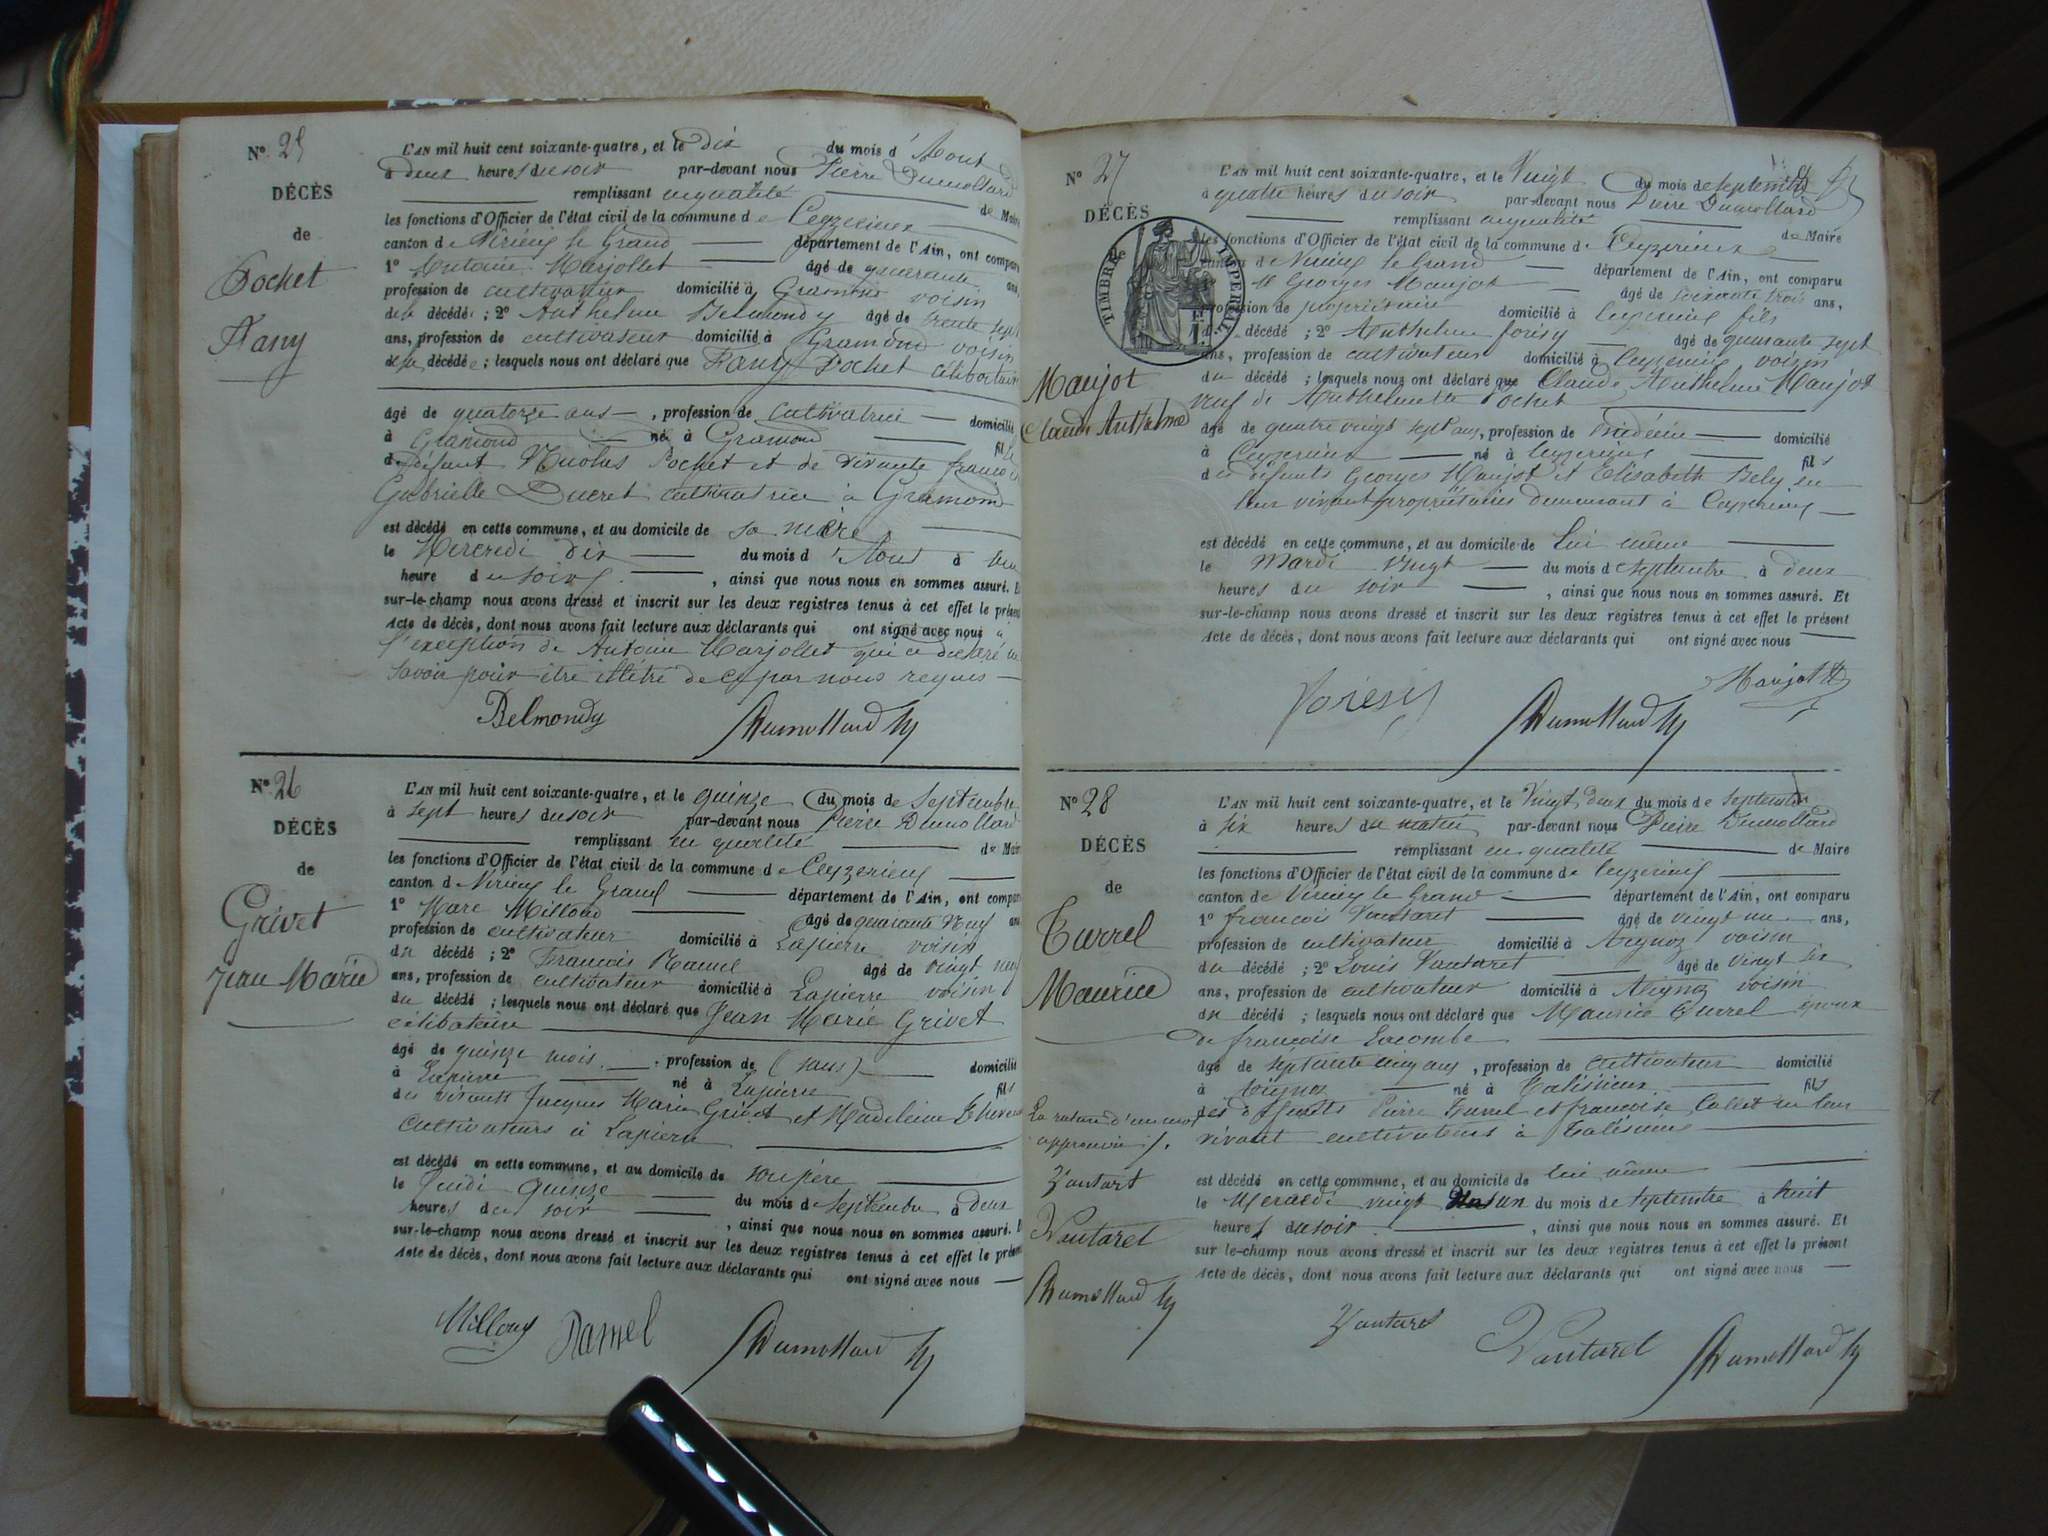 N° 25
DÉCÈS
de
Pochet
Fany
L'AN mil huit cent soixante-quatre, et le dix du mois d'Aout
à deux heures du soir par-devant nous Pierre Dumollard
remplissant en qualité de Maire
les fonctions d'Officier de l'état civil de la commune de Ceyzerieux
canton de Virieu le Grand département de l'Ain, ont comparu
1° Antoine Marjollet âgé de quarante ans,
profession de cultivateur domicilié à Gramond voisin
de la décédée; 2° Anthelme Belmondy âgé de trente sept
ans, profession de cultivateur domicilié à Gramond voisin
de la décédée; lesquels nous ont déclaré que Fany Pochet célibataire
âgé de quatorze ans, profession de cultivatrice domicilié
à Gramond né à Gramond fille
de défunt Nicolas Pochet et de vivante
Gabrielle Ducret cultivatrice à Gramond
est décédé en cette commune, et au domicile de sa mère
le Mercredi dix du mois d'Aout à une
heure du soir, ainsi que nous nous en sommes assuré. Et
sur-le-champ nous avons dressé et inscrit sur les deux registres tenus à cet effet le présent
Acte de décès, dont nous avons fait lecture aux déclarants qui ont signé avec nous à
l'exception de Antoine Marjollet qui a déclaré ne
savoir pour être illétré de ce par nous requis
Belmondy Dumollard
N° 26
DÉCÈS
de
Grivet
Jean Marie
L'AN mil huit cent soixante-quatre, et le quinze du mois de Septembre
à sept heures du soir par-devant nous Pierre Dumollard
remplissant en qualité de Maire
les fonctions d'Officier de l'état civil de la commune de Ceyzerieux
canton de Virieu le Grand département de l'Ain, ont comparu
1° Marc Milloud âgé de quarante neuf ans
profession de cultivateur domicilié à Lapierre voisin
du décédé; 2° François Ramel âgé de vingt neuf
ans, profession de cultivateur domicilié à Lapierre voisin
du décédé; lesquels nous ont déclaré que Jean Marie Grivet
célibataire
âgé de quinze mois, profession de (sans) domicilié
à Lapierre né à Lapierre fils
des vivants Jacques Marie Grivet et Madeleine
cultivateurs à Lapierre
est décédé en cette commune, et au domicile de son père
le Jeudi quinze du mois de Septembre à deux
heures du soir, ainsi que nous nous en sommes assuré. Et
sur-le-champ nous avons dressé et inscrit sur les deux registres tenus à cet effet le présent
Acte de décès, dont nous avons fait lecture aux déclarants qui ont signé avec nous
Ramel Dumollard
N° 27
DÉCÈS
TIMBRE IMPERIAL
Maujot
Claude Anthelme
L'AN mil huit cent soixante-quatre, et le Vingt du mois de septembre
à quatre heures du soir par-devant nous Pierre Dumollard
remplissant en qualité de Maire
les fonctions d'Officier de l'état civil de la commune de Ceyzerieux
canton de Virieu le Grand département de l'Ain, ont comparu
Georges Maujot âgé de soixante trois ans,
profession de propriétaire domicilié à Ceyzerieux fils
du décédé; 2° Anthelme Forisy âgé de quarante sept
ans, profession de cultivateur domicilié à Ceyzerieux voisin
du décédé; lesquels nous ont déclaré que Claude Anthelme Maujot
veuf de Anthelmette Pochet
âgé de quatre vingt sept ans, profession de médecin domicilié
à Ceyzerieux né à Ceyzerieux fils
des défunts Georges Maujot et Elisabeth Bely en
leur vivant propriétaires demeurant à Ceyzerieux
est décédé en cette commune, et au domicile de lui même
le Mardi vingt du mois de septembre à deux
heures du soir, ainsi que nous nous en sommes assuré. Et
sur-le-champ nous avons dressé et inscrit sur les deux registres tenus à cet effet le présent
Acte de décès, dont nous avons fait lecture aux déclarants qui ont signé avec nous
Maujot
Forisy Dumollard
N° 28
DÉCÈS
de
Turrel
Maurice
L'AN mil huit cent soixante-quatre, et le Vingt deux du mois de septembre
à six heures du matin par-devant nous Pierre Dumollard
remplissant en qualité de Maire
les fonctions d'Officier de l'état civil de la commune de Ceyzerieux
canton de Virieu le Grand département de l'Ain, ont comparu
1° françois Vautaret âgé de vingt un ans,
profession de cultivateur domicilié à Aignoz voisin
du décédé; 2° Louis Vautaret âgé de vingt six
ans, profession de cultivateur domicilié à Aignoz voisin
du décédé; lesquels nous ont déclaré que Maurice Turrel époux
de françoise Lacombe
âgé de septante cinq ans, profession de cultivateur domicilié
à Aignoz né à Talissieux fils
des défunts Pierre Turrel et françoise Collet en leur
vivant cultivateurs à Talissieux
La rature d'un mot
approuvée
Vautaret
Vautaret
Dumollard
est décédé en cette commune, et au domicile de lui même
le Mercredi vingt un du mois de septembre à huit
heures du soir, ainsi que nous nous en sommes assuré. Et
sur-le-champ nous avons dressé et inscrit sur les deux registres tenus à cet effet le présent
Acte de décès, dont nous avons fait lecture aux déclarants qui ont signé avec nous
Vautaret Vautaret Dumollard